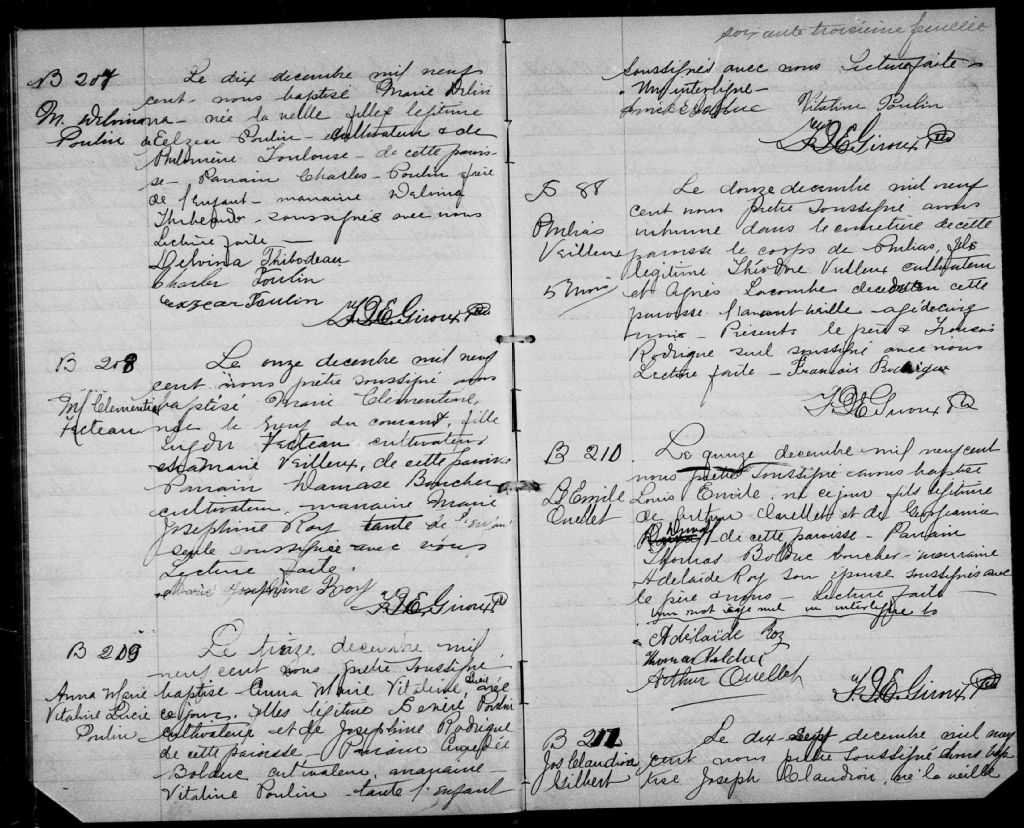 B 207
M. Delvina
Poulin
Le dix decembre mil neuf
cent nous baptisé Marie Delvi
na - née la veille fille legitime
d'Elzear Poulin - cultivateur & de
Philomène Toulouse - de cette parois
se - Parrain Charles - Poulin frère
de l'enfant - marraine Delvina
Thibeau - soussignés avec nous
Lecture faite -
Delvina Thibodeau
Charles Poulin
Eexzear Poulin
Giroux Ptre
B 208
M Clementine
Fecteau
Le onze decembre mil neuf
cent nous pretre soussigné avons
baptisé Marie Clementine,
née le neuf du courant, fille
Fecteau cultivateur
Marie Veilleux, de cette paroisse
Parrain Damase Boucher
cultivateur, marraine Marie
Josephine Roy tante de l'enfant
seule soussignée avec nous
Lecture faite.
Marie Josephine Roy
Giroux Ptre
B 209
Anna Marie
Vitaline Lucie
Poulin
Le treize decembre mil
neuf cent nous pretre soussigné
baptisé Anna Marie Vitaline, Lucie, née
ce jour, filles legitime Poulin
cultivateur et de Josephine Rodrigue
de cette paroisse - Parrain
Bolduc cultivateur, marraine -
Vitaline Poulin - tante l'enfant
soixante troisième feuillet
soussignés avec nous Lecture faite -
Un interligne -
Bolduc Vitaline Poulin
Giroux Ptre
S 88
Philias
Veilleux
5 mois
Le douze decembre mil neuf
cent nous pretre soussigné avons
inhumé dans le cimetière de cette
paroisse le corps de Philias, fils
legitime Théodore Veilleux cultivateur
et Agnès Lacombe decedé en cette
paroisse l'avant veille - agé de cinq
mois - Présents le père & François
Rodrigue seul soussigné avec nous
Lecture faite - Francois Rodrigue
Giroux Ptre
B 210
Ls Emile
Ouellet
Le quinze decembre mil neuf cent
nous pretre soussigné avons baptisé
Louis Emile, né ce jour fils legitime
de Arthur Ouellet et de Georgianna
de cette paroisse - Parrain
Thomas Bolduc boucher - marraine
Adelaide Roy son épouse soussignés avec
le père & nous - Lecture faite -
un mot rayé nul un interligne bo
Adélaide Roy
Thomas Bolduc
Arthur Ouellet
Giroux Ptre
B 211
Jos Claudion
Gilbert
Le dix-sept decembre mil neuf
cent nous pretre soussigné avons bap
tisé Joseph Claudion, né la veille